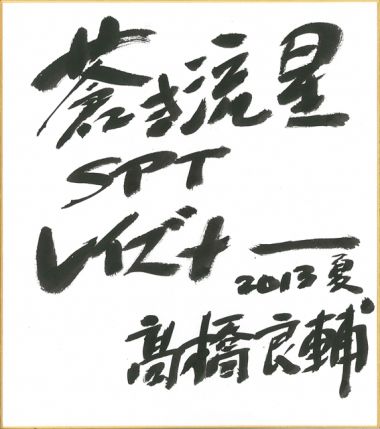 蒼き流星
SPT
レイズナー
2013夏
高橋良輔